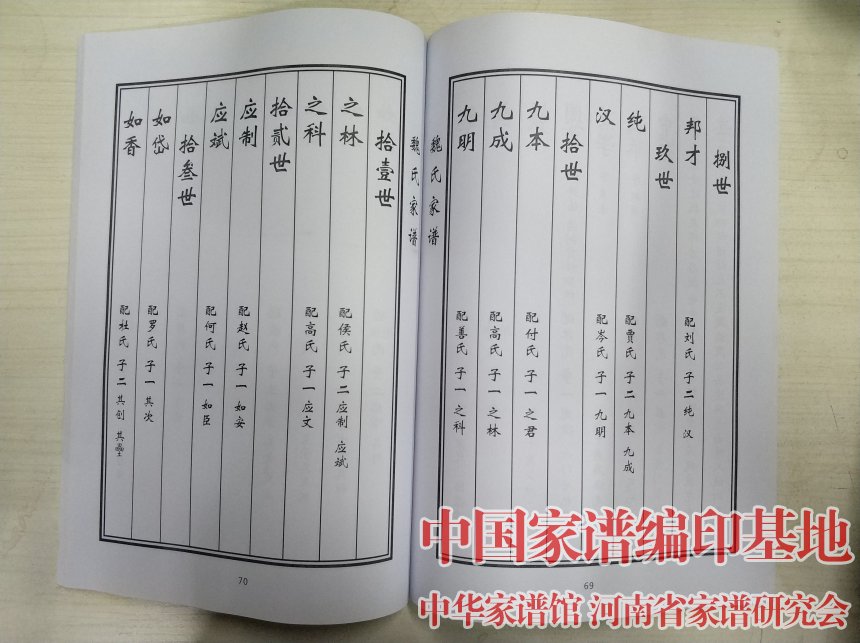 捌世
邦才 配刘氏 子二 纯 汉
玖世
纯 配贾氏 子二 九本 九成
汉 配岑氏 子一 九明
拾世
九本 配付氏 子一 之君
九成 配高氏 子一 之林
九明 配善氏 子一 之科
魏氏家谱
69
魏氏家谱
拾壹世
之林 配侯氏 子二 应制 应斌
之科 配高氏 子一 应文
拾贰世
应制 配赵氏 子一 如安
应斌 配何氏 子一 如臣
拾叁世
如岱 配罗氏 子一 其次
如香 配杜氏 子二 其创
70
中国家谱编印基地
中华家谱馆 河南省家谱研究会